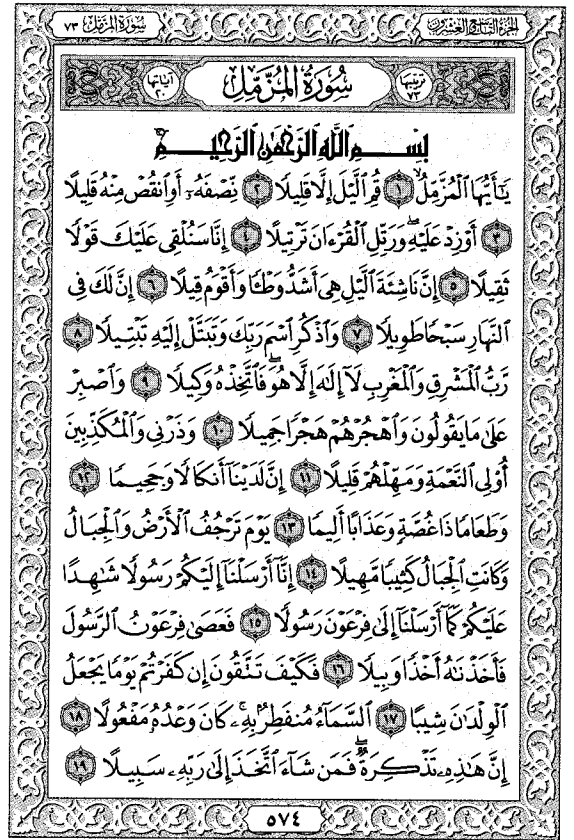 سُورَةُ المُزَّمِّل ٧٣ الجُزءُ التَّاسِع وَالعِشرُون
ترتيبها ٧٣ سُورَةُ المُزَّمِّلِ آياتها ٢٠
بِسْمِ اللَّهِ الرَّحْمَٰنِ الرَّحِيمِ
يَٰٓأَيُّهَا ٱلْمُزَّمِّلُ ١ قُمِ ٱلَّيْلَ إِلَّا قَلِيلًا ٢ نِّصْفَهُۥٓ أَوِ ٱنقُصْ مِنْهُ قَلِيلًا
٣ أَوْ زِدْ عَلَيْهِ وَرَتِّلِ ٱلْقُرْءَانَ تَرْتِيلًا ٤ إِنَّا سَنُلْقِى عَلَيْكَ قَوْلًا
ثَقِيلًا ٥ إِنَّ نَاشِئَةَ ٱلَّيْلِ هِىَ أَشَدُّ وَطْـًٔا وَأَقْوَمُ قِيلًا ٦ إِنَّ لَكَ فِى
ٱلنَّهَارِ سَبْحًا طَوِيلًا ٧ وَٱذْكُرِ ٱسْمَ رَبِّكَ وَتَبَتَّلْ إِلَيْهِ تَبْتِيلًا ٨
رَّبُّ ٱلْمَشْرِقِ وَٱلْمَغْرِبِ لَآ إِلَٰهَ إِلَّا هُوَ فَٱتَّخِذْهُ وَكِيلًا ٩ وَٱصْبِرْ
عَلَىٰ مَا يَقُولُونَ وَٱهْجُرْهُمْ هَجْرًا جَمِيلًا ١٠ وَذَرْنِى وَٱلْمُكَذِّبِينَ
أُو۟لِى ٱلنَّعْمَةِ وَمَهِّلْهُمْ قَلِيلًا ١١ إِنَّ لَدَيْنَآ أَنكَالًا وَجَحِيمًا ١٢
وَطَعَامًا ذَا غُصَّةٍ وَعَذَابًا أَلِيمًا ١٣ يَوْمَ تَرْجُفُ ٱلْأَرْضُ وَٱلْجِبَالُ
وَكَانَتِ ٱلْجِبَالُ كَثِيبًا مَّهِيلًا ١٤ إِنَّآ أَرْسَلْنَآ إِلَيْكُمْ رَسُولًا شَٰهِدًا
عَلَيْكُمْ كَمَآ أَرْسَلْنَآ إِلَىٰ فِرْعَوْنَ رَسُولًا ١٥ فَعَصَىٰ فِرْعَوْنُ ٱلرَّسُولَ
فَأَخَذْنَٰهُ أَخْذًا وَبِيلًا ١٦ فَكَيْفَ تَتَّقُونَ إِن كَفَرْتُمْ يَوْمًا يَجْعَلُ
ٱلْوِلْدَٰنَ شِيبًا ١٧ ٱلسَّمَآءُ مُنفَطِرٌۢ بِهِۦ كَانَ وَعْدُهُۥ مَفْعُولًا ١٨
إِنَّ هَٰذِهِۦ تَذْكِرَةٌ فَمَن شَآءَ ٱتَّخَذَ إِلَىٰ رَبِّهِۦ سَبِيلًا ١٩
٥٧٤